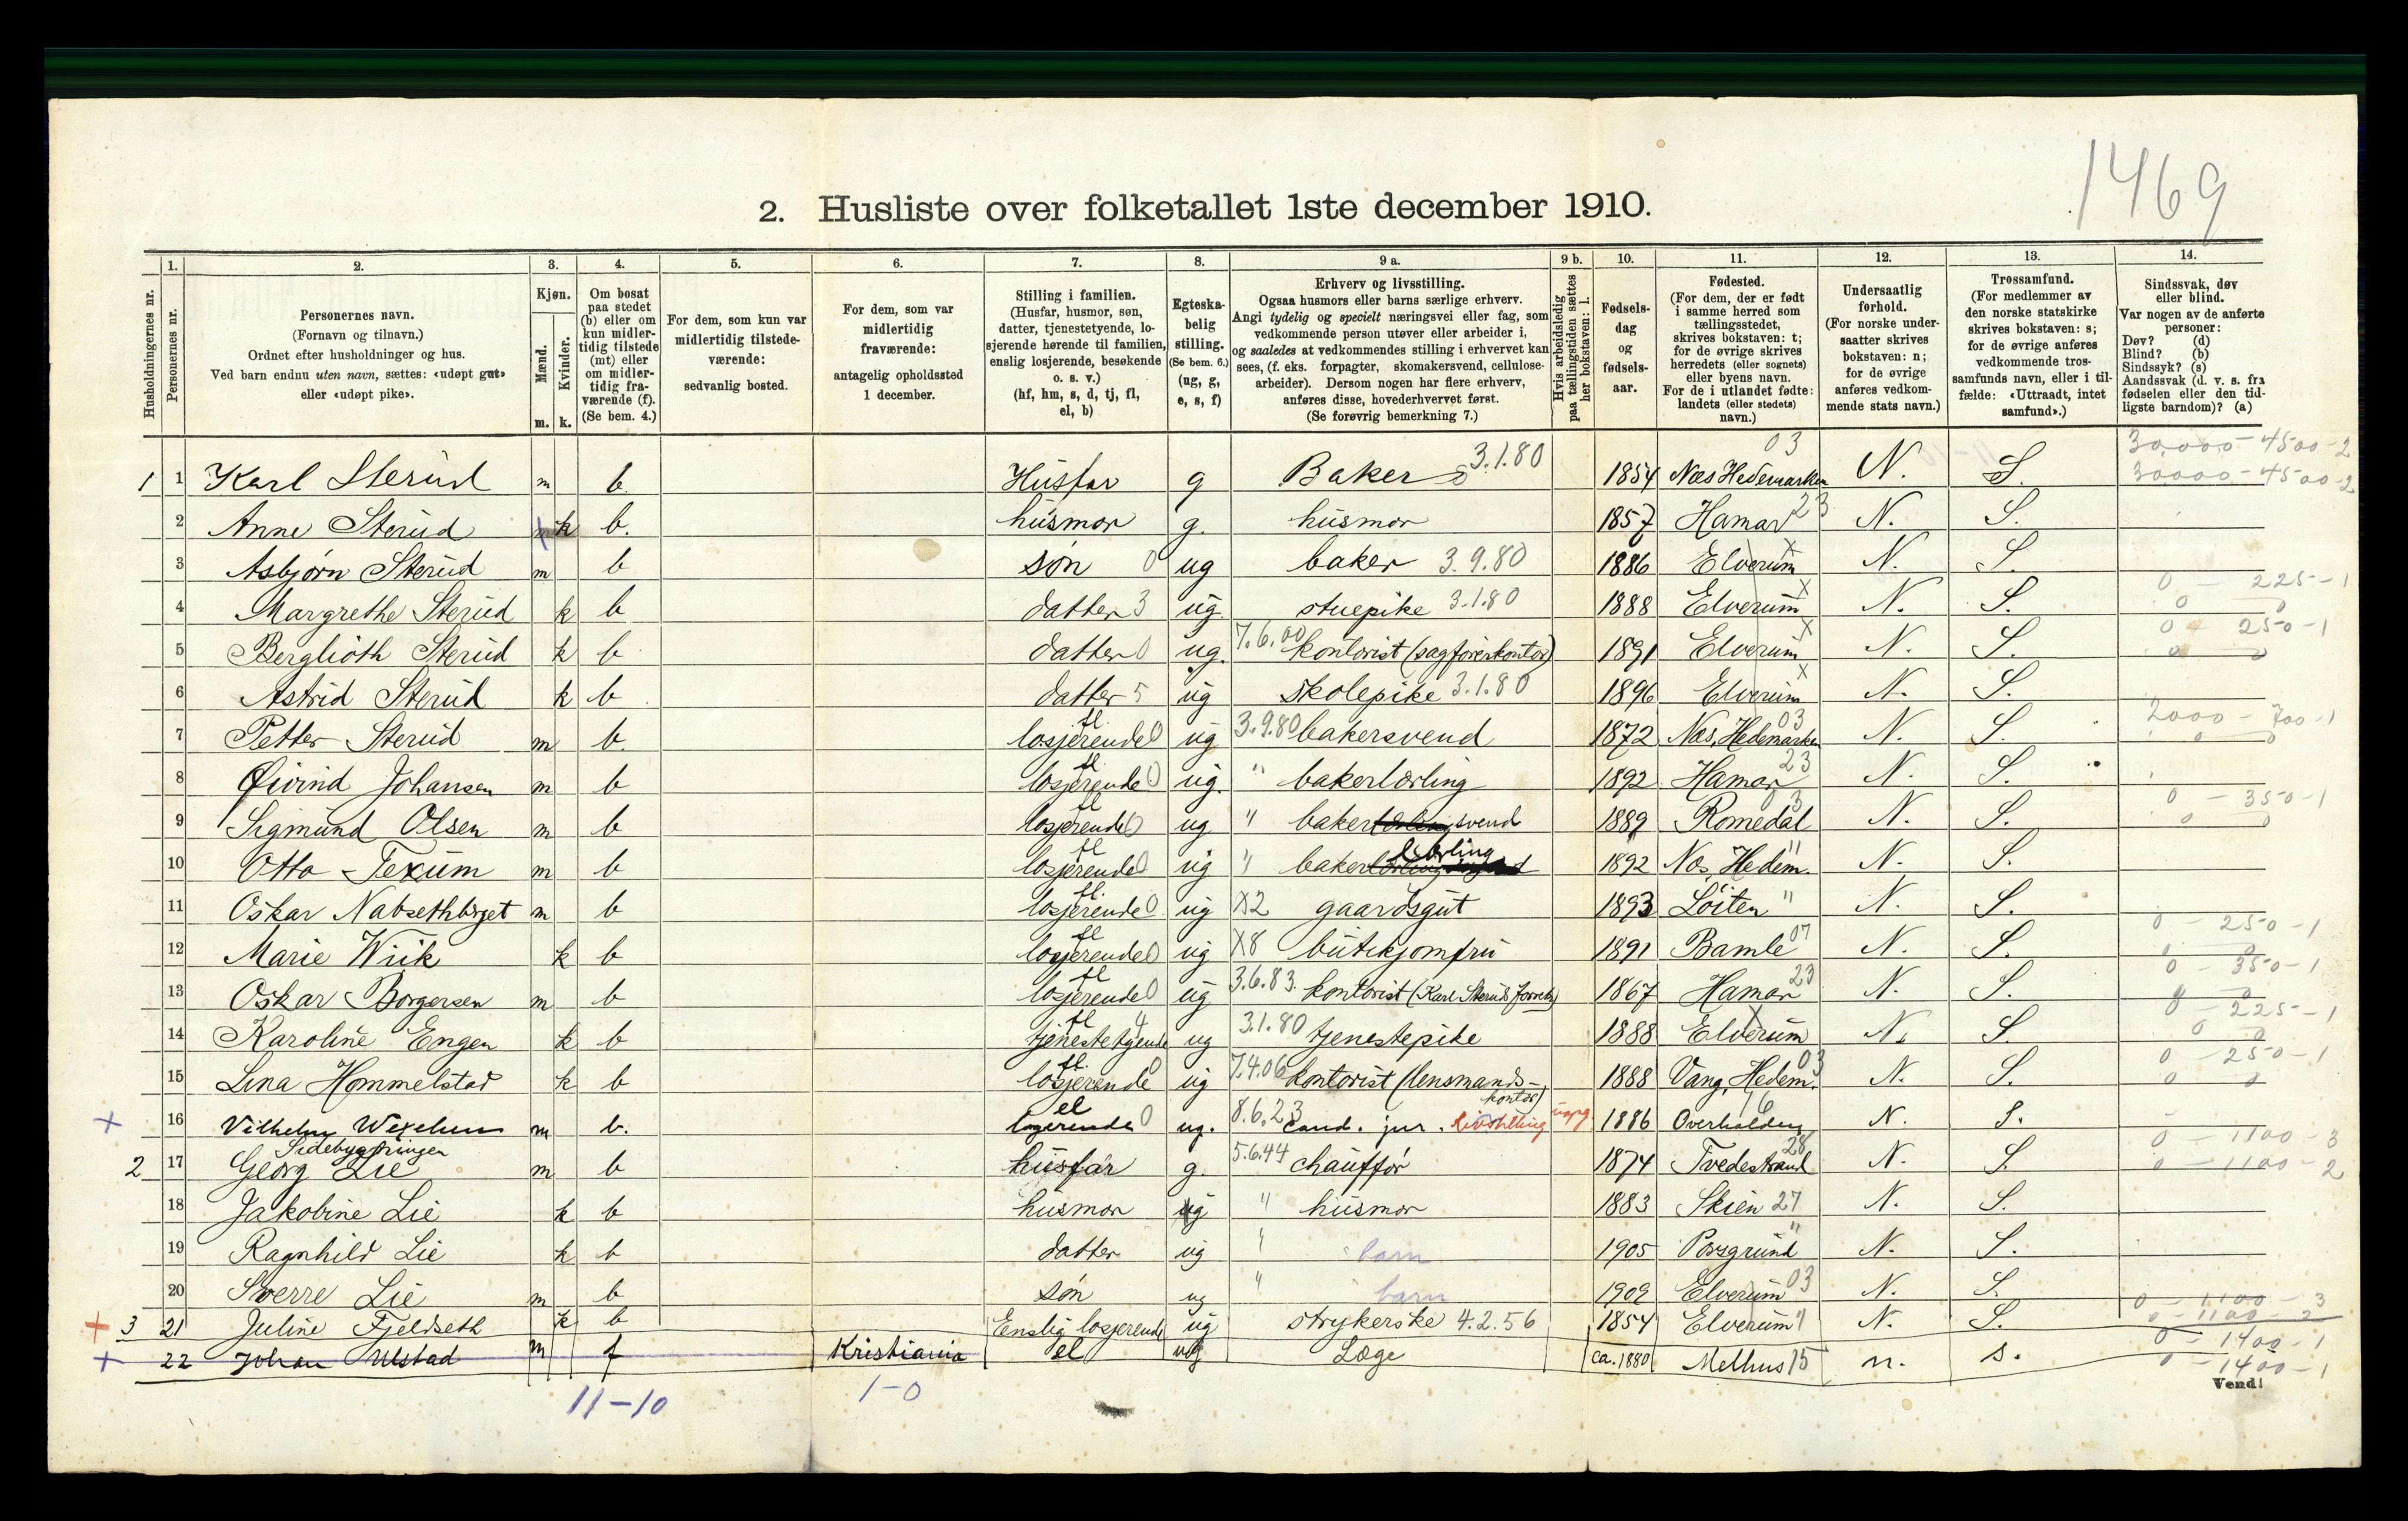 1469
2. Husliste over folketallet 1ste december 1910.
Husholdningernes nr.
1.
Personernes nr.
2.
Personernes navn.
(Fornavn og tilnavn.)
Ordnet efter husholdninger og hus.
Ved barn endnu uten navn, sættes: «udøpt gut»
eller «udøpt pike».
3.
Kjøn.
Mænd.
Kvinder.
m. k.
4.
Om bosat
paa stedet
(b) eller om
kun midler-
tidig tilstede
(mt) eller
om midler-
tidig fra-
værende (f).
(Se bem. 4.)
5.
For dem, som kun var
midlertidig tilstede-
værende:
sedvanlig bosted.
6.
For dem, som var
midlertidig
fraværende:
antagelig opholdssted
1 december.
7.
Stilling i familien.
(Husfar, husmor, søn,
datter, tjenestetyende, lo-
sjerende hørende til familien,
enslig losjerende, besøkende
o. s. v.)
(hf, hm, s, d, tj, fl,
el, b)
8.
Egteska-
belig
stilling.
(Se bem. 6.)
(ug, g,
e, s, f)
9 a.
Erhverv og livsstilling.
Ogsaa husmors eller barns særlige erhverv.
Angi tydelig og specielt næringsvei eller fag, som
vedkommende person utøver eller arbeider i,
og saaledes at vedkommendes stilling i erhvervet kan
sees, (f. eks. forpagter, skomakersvend, cellulose-
arbeider). Dersom nogen har flere erhverv,
anføres disse, hovederhvervet først.
(Se forøvrig bemerkning 7.)
9 b.
Hvis arbeidsledig
paa tællingstiden sættes
her bokstaven: l.
10.
Fødsels-
dag
og
fødsels-
aar.
11.
Fødested.
(For dem, der er født
i samme herred som
tællingsstedet,
skrives bokstaven: t;
for de øvrige skrives
herredets (eller sognets)
eller byens navn.
For de i utlandet fødte:
landets (eller stedets)
navn.)
12.
Undersaatlig
forhold.
(For norske under-
saatter skrives
bokstaven: n;
for de øvrige
anføres vedkom-
mende stats navn.)
13.
Trossamfund.
(For medlemmer av
den norske statskirke
skrives bokstaven: s;
for de øvrige anføres
vedkommende tros-
samfunds navn, eller i til-
fælde: «Uttraadt, intet
samfund».)
14.
Sindssvak, døv
eller blind.
Var nogen av de anførte
personer:
Døv? (d)
Blind? (b)
Sindssyk? (s)
Aandssvak (d. v. s. fra
fødselen eller den tid-
ligste barndom)? (a)
03 30,000 - 4500 - 2
1 1 Karl Sterud m b. Husfar g Baker 3.1.80 1854 Næs Hedemarken N. S. 30000 - 4500 - 2
2 Anne Sterud k b. husmor g. husmor 1857 Hamar 23 N. S.
3 Asbjørn Sterud m b søn 0 ug baker 3.9.80 1886 Elverum x N. S.
4 Margrethe Sterud k b datter 3 ug. stuepike 3.1.80 1888 Elverum x N. S. 0 - 225 - 1
5 Bergliòth Sterud k b datter 0 ug. 7.6.00 kontorist (sagførerkontor) 1891 Elverum x N. S. 0 - 250 - 1
6 Astrid Sterud k b datter 5 ug skolepike 3.1.80 1896 Elverum x N. S.
7 Petter Sterud m b. fl losjerende 0 ug 3.9.80 bakersvend 1872 Næs, Hedemarken 03 N. S. 2000 - 700 - 1
8 Øivind Johansen m b fl losjerende 0 ug. " bakerlærling 1892 Hamar 23 N. S.
9 Sigmund Olsen m b fl losjerende 0 ug " baker svend 1889 Romedal 03 N. S. 0 - 350 - 1
10 Otto Texum m b fl losjerende 0 ug " baker lærling 1892 Næs, Hedem. " N. S.
11 Oskar Nabsethberget m b fl. losjerende 0 ug X2 gaardsgut 1893 Løiten " N. S.
12 Marie Wiik k b fl losjerende 0 ug X8 butikjomfru 1891 Bamle 07 N. S. 0 - 250 - 1
13 Oskar Borgersen m b fl losjerende 0 ug 3.6.83. kontorist (Karl Steruds forretn) 1867 Hamar 23 N. S. 0 - 350 - 1
14 Karoline Engen k b fl tjenestetyende ug 3.1.80 tjenestepike 1888 Elverum x N. S. 0 - 225 - 1
15 Lina Hommelstad k b fl losjerende 0 ug 7.4.06 kontorist (lensmands-
kontor) 1888 Vang, Hedem. 03 N. S. 0 - 250 - 1
+ 16 Vilhelm Wexelsen m b. el logerende 0 ug. 8.6.23 Cand. jur. 1886 Overhalden 16 N. S.
Sidebygningen
2 17 Georg Lie m b husfar g. 5.6.44 chauffør 1874 Tvedestrand 28 N. S. 0 - 1100 - 3
0 - 1100 - 2
18 Jakobine Lie k b husmor g " husmor 1883 Skien 27 N. S.
19 Ragnhild Lie k b datter ug " barn 1905 Porsgrund " N. S.
20 Sverre Lie m b søn ug " barn 1909 Elverum 03 N. S.
+ 3 21 Juline Fjeldseth k b Enslig losjerende ug strykerske 4.2.56 1854 Elverum " N. S. 0 - 1100 - 3
0 - 1100 - 2
+ 22 Johan Ulstad m f Kristiania el ug Læge ca. 1880 Melhus 15 n. s. 0 - 1400 - 1
0 - 1400 - 1
Vend!
11-10 1-0